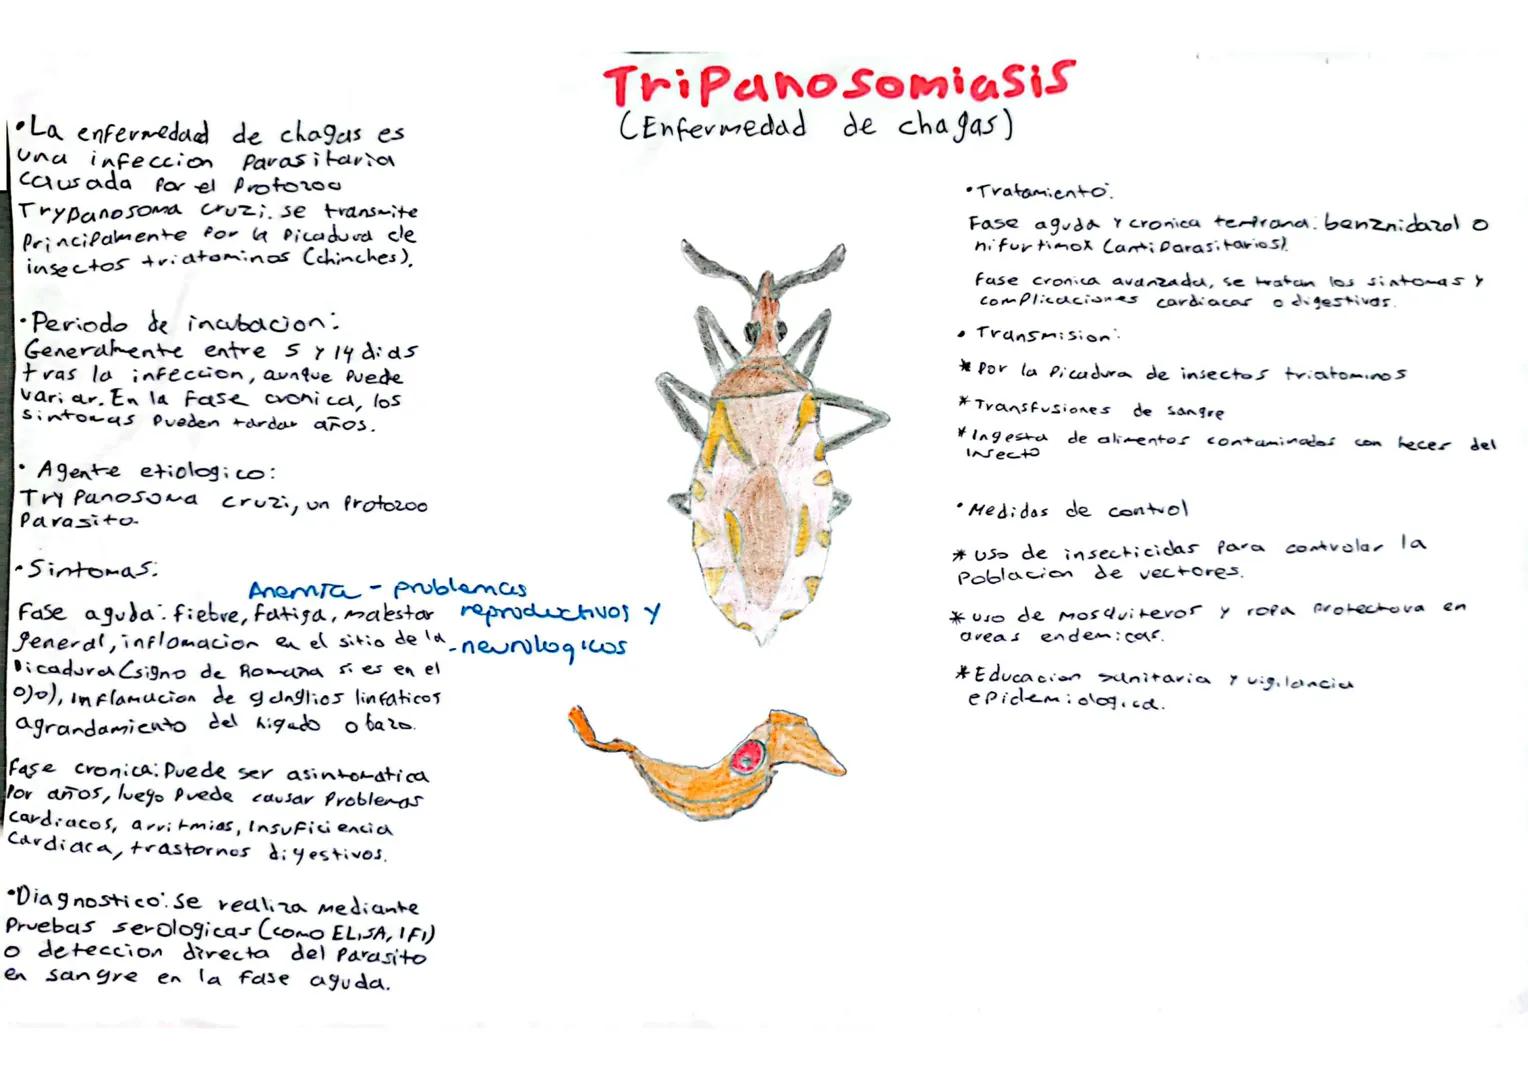 TriPanosomiasis
(Enfermedad de chagas)
•La enfermedad de chagas es
una infeccion Parasitaria
causada por el Protozoo
Trypanosoma cruzi. se transmite
Principalmente por la Picadura de
insectos triatominos (chinches).
•Periodo de incubacion:
Generalmente entre 5 y 14 dias
tras la infeccion, aunque Puede
variar. En la Fase cronica, los
sintomas Pueden tardar años.
• Agente etiologico:
TryPanosoma cruzi, un Protozoo
Parasito.
•Sintomas:
Anemia - problemas
reproductivos y
-neurologicos
Fase aguda: fiebre, fatiga, malestar
general, inflamacion en el sitio de la
Picadura (signo de Romaña si es en el
ojo), inflamacion de ganglios linfaticos
agrandamiento del higado o bazo.
Fase cronica: Puede ser asintomatica
Por años, luego Puede causar Problemas
cardiacos, arritmias, Insuficiencia
Cardiaca, trastornos digestivos.
•Diagnostico: Se realiza mediante
Pruebas serologicas (como ELISA, IFI)
o deteccion directa del Parasito
en sangre en la fase aguda.
•Tratamiento:
Fase aguda y cronica temprana: benznidazol o
nifurtimox (antiParasitarios).
Fase cronica avanzada, se tratan los sintomas y
complicaciones cardiacas o digestivas.
• Transmision:
* Por la Picadura de insectos triatominos
* Transfusiones de sangre
* Ingesta de alimentos contaminados con heces del
insecto
•Medidas de control
* uso de insecticidas Para controlar la
Poblacion de vectores.
* uso de mosquiteros y ropa Protectora en
areas endemicas.
* Educacion sanitaria y vigilancia
ePidemiologica.